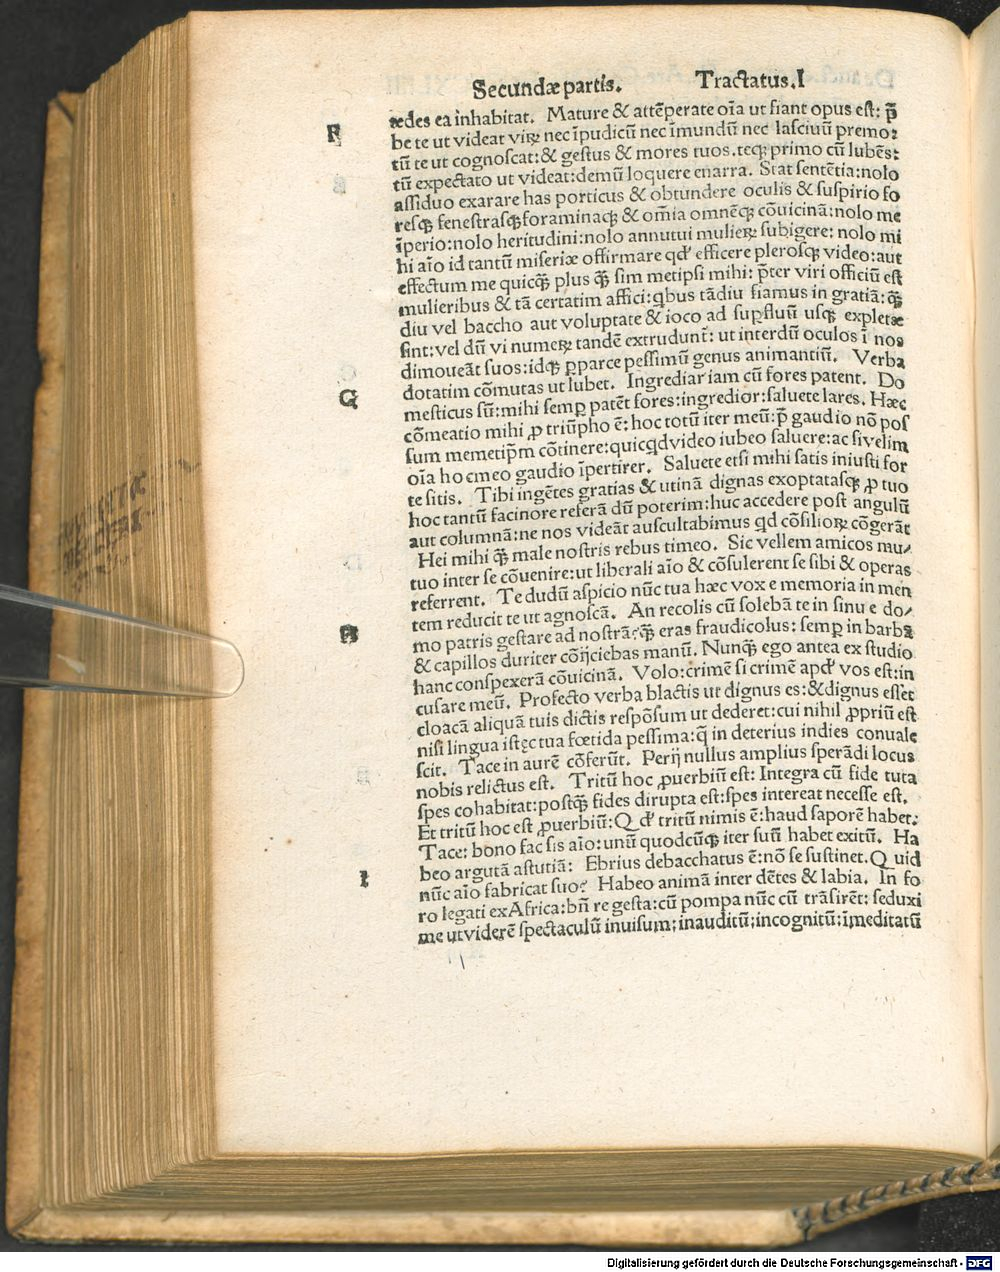 Secundæ partis. Tractatus. I
F
ædes ea inhabitat. Mature & attēperate oīa ut fiant opus est: p̄
be te ut videat virꝝ nec īpudicū nec īmundū nec lasciuū premo:
tū te ut cognoscat: & gestus & mores tuos. teqꝫ primo cū lubēs:
tū expectato ut videat: demū loquere enarra. Stat sentētia: nolo
assiduo exarare has porticus & obtundere oculis & suspirio fo
resqꝫ fenestrasqꝫ foraminaqꝫ & om̄ia omnēqꝫ cōuicinā: nolo me
īperio: nolo heritudini: nolo annutui mulieꝝ subigere: nolo mi
hi aīo id tantū miseriæ offirmare qđ efficere plerosqꝫ video: aut
effectum me quicqꝫ̄ plus qꝫ̄ sim metipsi mihi: p̄ter viri officiū est
mulieribus & tā certatim affici: qbus tādiu fiamus in gratiā: qꝫ̄
diu vel baccho aut voluptate & ioco ad suꝑfluū usqꝫ expletæ
sint: vel dū vi numeꝝ tandē extrudunt̄: ut interdū oculos ī nos
dimoueāt suos: idqꝫ ꝑparce pessimū genus animantiū. Verba
dotatim cōmutas ut lubet. Ingrediar iam cū fores patent. Do
G
mesticus sū: mihi semꝑ patēt fores: ingredior: saluete lares. Hæc
cōmeatio mihi ꝓ triūpho ē: hoc totū iter meū: p̄ gaudio nō pos
sum memetip̄m cōtinere: quicqd video iubeo saluere: ac si velim
oīa hoc meo gaudio īpertirer. Saluete etsi mihi satis iniusti for
te sitis. Tibi ingētes gratias & utinā dignas exoptatasqꝫ ꝓ tuo
hoc tantū facinore referā dū poterim: huc accedere post angulū
aut columnā: ne nos videāt auscultabimus qd cōsilioꝝ cōgerāt
Hei mihi qꝫ̄ male nostris rebus timeo. Sic vellem amicos mu-
tuo inter se cōuenire: ut liberali aīo & cōsulerent se sibi & operas
referrent. Te dudū aspicio nūc tua hæc vox e memoria in men
tem reducit te ut agnoscā. An recolis cū solebā te in sinu e do-
H
mo patris gestare ad nostrā? qꝫ̄ eras fraudicolus: semꝑ in barba
& capillos duriter cōijciebas manū. Nunqꝫ̄ ego antea ex studio
hanc conspexerā cōuicinā. Volo: crimē si crimē apđ vos est: in
cusare meū. Profecto verba blactis ut dignus es: & dignus esset
cloacā aliquā tuis dictis respōsum ut dederet: cui nihil ꝓpriū est
nisi lingua istęc tua fœtida pessima: q̄ in deterius indies conuale
scit. Tace in aurē cōferūt. Perij nullus amplius sperādi locus
nobis relictus est. Tritū hoc ꝓuerbiū est: Integra cū fide tuta
spes cohabitat: postqꝫ̄ fides dirupta est: spes intereat necesse est.
Et tritū hoc est ꝓuerbiū: Qđ tritū nimis ē: haud saporē habet.
Tace: bono fac sis aīo: unū quodcūqꝫ iter suū habet exitū. Ha
beo argutā astutiā: Ebrius debacchatus ē: nō se sustinet. Quid
I
nūc aīo fabricat suo? Habeo animā inter dētes & labia. In fo
ro legati ex Africa: bn̄ re gesta: cū pompa nūc cū trāsirēt: seduxi
me ut viderē spectaculū inuisum: inauditū: incognitū: īmeditatū
Digitalisierung gefördert durch die Deutsche Forschungsgemeinschaft - DFG